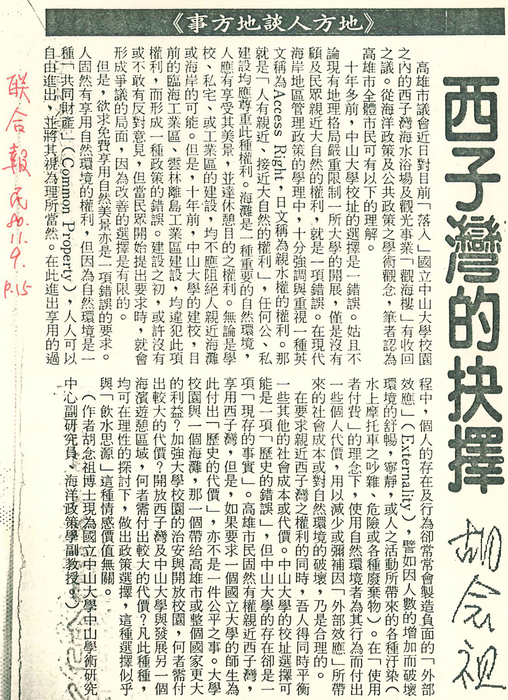 《地方人談地方事》
西子灣的抉擇
胡念祖
高雄市議會近日對目前「落入」國立中山大學校園
之內的西子灣海水浴場及觀光事業「觀海樓」有收回
之議。從海洋政策及公共政策之學術觀念，筆者認為
高雄市全體市民可有以下的理解。
十年多前，中山大學校址的選擇是一錯誤。姑且不
論現有地理格局嚴重限制一所大學的開展，僅是沒有
顧及民眾親近大自然的權利，就是一項錯誤。在現代
海岸地區管理政策的學理中，十分強調與重視一種英
文稱為Access Right，日文稱為親水權的權利。那
就是「人有親近、接近大自然的權利」，任何公、私
建設均應尊重此種權利。海灘是一種重要的自然環境，
人應有享受其美景，並達休憩目的之權利。無論是學
校、私宅、或工業區的建設，均不應阻絕人親近海灘
或海岸的可能。但是，十年前，中山大學的建校，目
前的臨海工業區、雲林離島工業區建設，均違犯此項
權利，而形成一種政策的錯誤。建設之初，或許沒有
或不敢有反對意見，但當民眾開始提出要求時，就會
形成爭議的局面，因為改善的選擇是有限的。
但是，欲求免費享用自然美景亦是一項錯誤的要求。
人固然有享用自然環境的權利，但因為自然環境是一
種「共同財產」（Common Property），人人可以
自由進出，並將其視為理所當然。在此進出享用的過
程中，個人的存在及行為卻常常會製造負面的「外部
效應」（Externality），譬如因人數的增加而破壞
環境的舒暢，寧靜，或人之活動所帶來的各種汙染（
水上摩托車之吵雜、危險或各種廢棄物）。在「使用
者付費」的理念下，使用自然環境者為其行為而付出
一些個人代價，用以減少或彌補因「外部效應」所帶
來的社會成本或對自然環境的破壞，乃是合理的。
在要求親近西子灣之權利的同時，吾人得同時平衡
一些其他的社會成本或代價。中山大學的校址選擇可
能是一項「歷史的錯誤」，但中山大學的存在卻是一
項「現存的事實」。高雄市民固然有權親近西子灣，
享用西子灣，但是，如果要求一個國立大學的師生為
此付出「歷史的代價」，亦不是一件公平之事。大學
校園與一個海灘，那一個帶給高雄市或整個國家更大
的利益？加強大學校園的治安與開放校園，何者需付
出較大的代價？開放西子灣及中山大學與發展另一個
海濱遊憩區域，何者需付出較大的代價？凡此種種，
均可在理性的探討下，做出政策選擇，這種選擇似乎
與「飲水思源」這種情感價值無關。
（作者胡念祖博士現為國立中山大學中山學術研究
中心副研究員、海洋政策學副教授。）
聯合報 民80.11.9. P.15